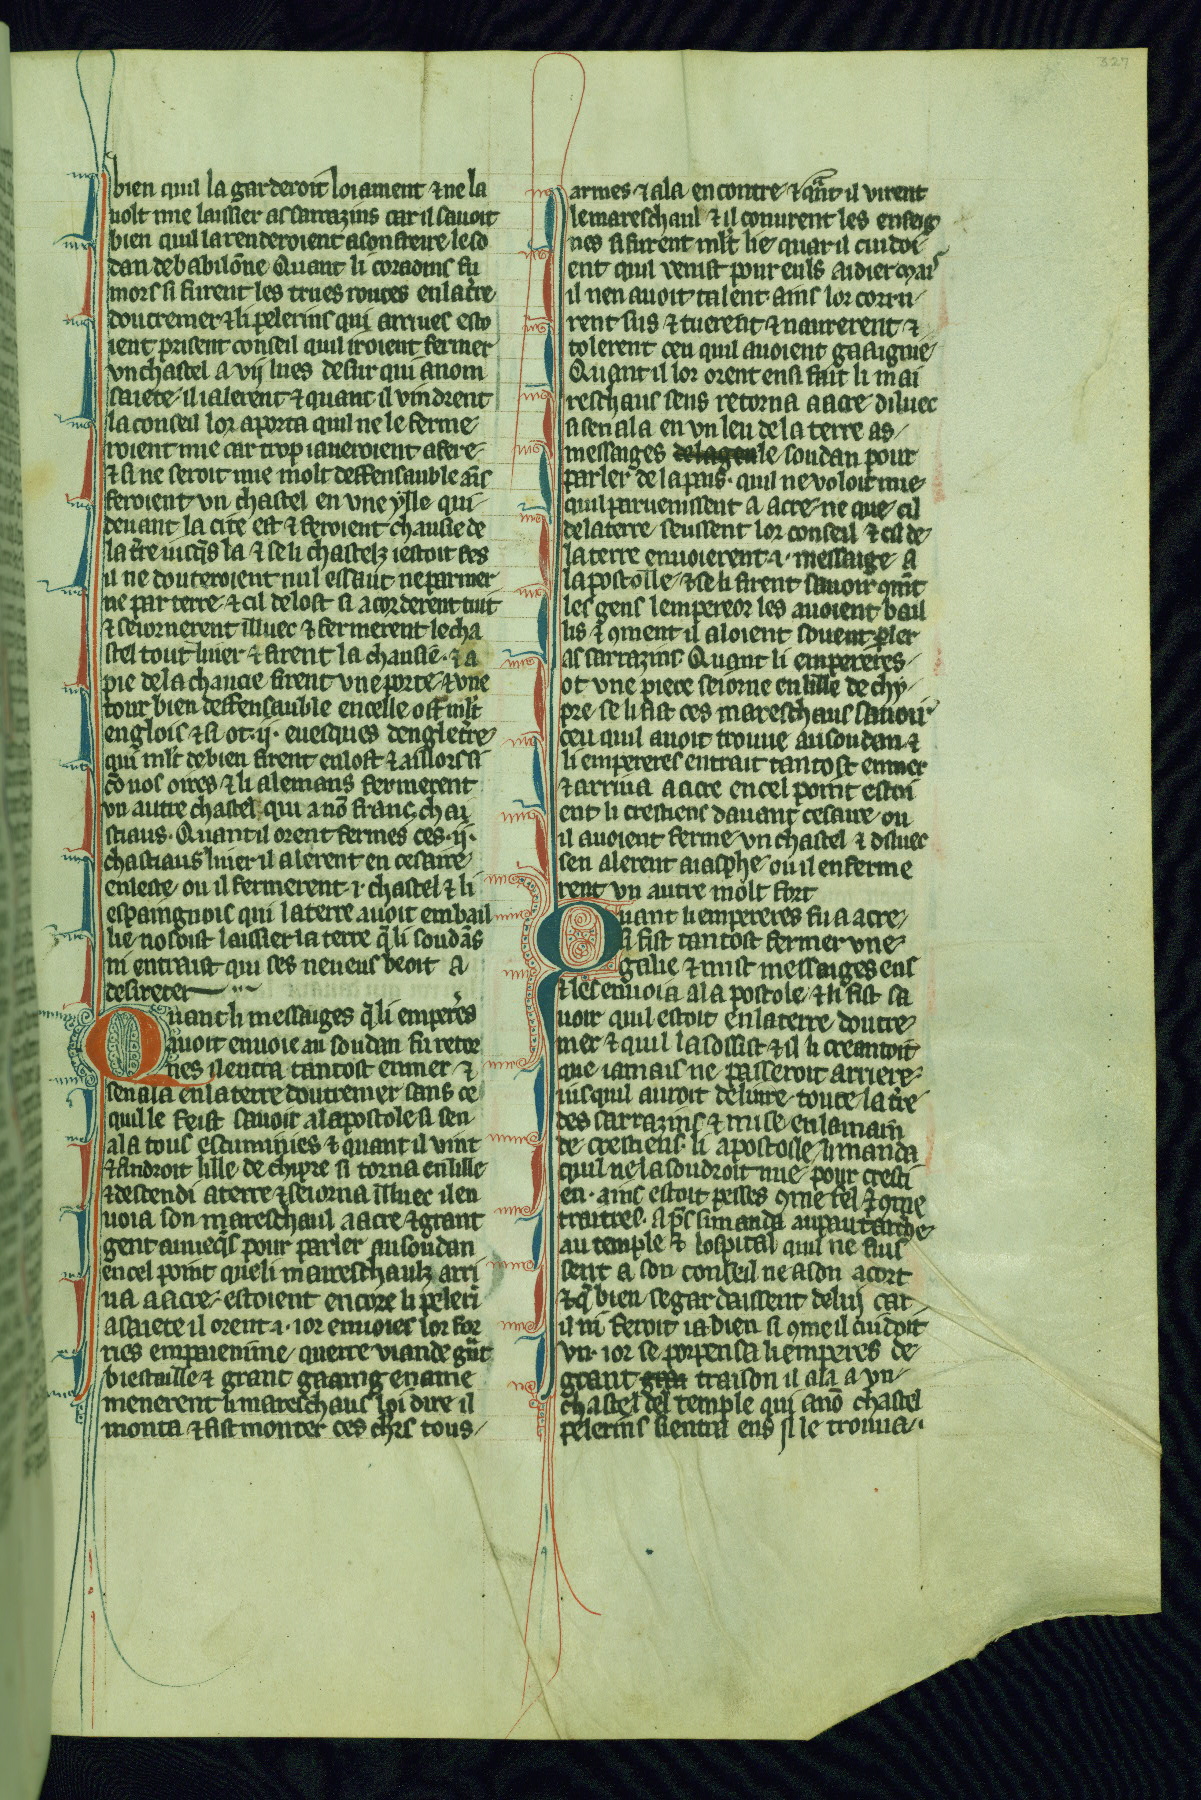 327
bien quil la garderoit loiament ⁊ ne la
uolt mie laissier as sarrazins car il sauoit
bien quil la renderoient a son freire le so
dan de babilōne Quant li coradins fu
mors si furent les trues routes en la t̄re
doutremer ⁊ li pelerins qui arriues esto
ient prisent conseil quil iroient fermer
vn chastel a vij liues de sur qui a nom
saiete il i alerent ⁊ quant il vindrent
la conseil lor aporta quil ne le ferme
roient mie car trop i aueroient a fere
⁊ si ne seroit mie molt deffensauble ains
feroient vn chastel en vne ysle qui
deuant la cite est ⁊ feroient chausie de
la t̄re iucq̄s la ⁊ se li chastelz i estoit fes
il ne douteroient nul essaut ne par mer
ne par terre ⁊ cil de lost si acorderent tuit
⁊ seiornerent illuec ⁊ fermerent le cha
stel tout liuer ⁊ firent la chausie ⁊ a
pie de la chaucie firent vne porte ⁊ vne
tour bien deffensauble en celle ost ml̄t
englois ⁊ si ot .ij. euesques dengletere
qui ml̄t de bien firent en lost ⁊ aillors si
cō uos oires ⁊ li alemans fermerent
vn autre chastel qui a nō franc chai
stiaus Quant il orent fermes ces .ij.
chastiaus liuer il alerent en cesaire
en leste ou il fermerent .i. chastel ⁊ li
espaingnois qui la terre auoit em bail
lie nosoist laissier la terre q̄ li soudās
ni entraist qui ses neueus beoit a
desireter
Quant li messaiges q̄ li emperes
auoit enuoie au soudan fu retor
nes il entra tantost en mer ⁊
sen ala en la terre doutremer sans ce
quil le feist sauoir a lapostole si sen
ala tous escuminies ⁊ quant il vint
⁊ androit lille de chipre si torna en lille
⁊ descendi a terre ⁊ seiorna illuec il en
uoia son mareschaul a acre ⁊ grant
gent auueq̄s pour parler au soudan
en cel point que li mareschaulz arri
ua a acre estoient encore li peleri
a saiete il orent .i. ior enuoies lor for
riers em paienime querre viande gn̄t
biestaille ⁊ grant gaaing en ame
menerent li mareschaus loi dire il
monta ⁊ fist monter ces chrs tous
armes ⁊ ala encontre ⁊ qāt il virent
le mareschaul ⁊ il conurent les enseig
nes si furent ml̄t lie quar il cuidoi
ent quil venist pour euls aidier mais
il nen auoit talent ains lor corru
rent sus ⁊ tuerent ⁊ naurerent ⁊
tolerent ceu quil auoient gaaignie
Quant il lor orent ensi fait li mai
reschaus sens retorna a acre diluec
si sen ala en vn leu de la terre as
messaiges le soudan pour
parler de la pais quil ne voloit mie
quil paruenissent a acre ne que cil
de la terre seussent lor conseil ⁊ cil de
la terre enuoierent .i. messaige a
lapostolle ⁊ se li firent sauoir 9mt
les gens lempereor les auoient bail
lis ⁊ 9ment il aloient souent p̄ler
as sarrazins Quant li empereres
ot vne piece seiorne en lille de chy
pre se li fist ces mareschaus sauoir
ceu quil auoit trouue au soudan ⁊
li empereres entrait tantost en mer
⁊ arriua a acre en cel point estoi
ent li crestiens dauant cesaire ou
il auoient ferme vn chastel ⁊ diluec
sen alerent a iasphe ou il en ferme
rent vn autre molt fort
Quant li empereres fu a acre
si fist tantost fermer vne
galie ⁊ mist messaiges ens
⁊ les enuoia a la postole ⁊ li fist sa
uoir quil estoit en la terre doutre
mer ⁊ quil lasosist ⁊ il li creantoit
que iamais ne passeroit arriere
iusquil auroit deliure toute la t̄re
des sarrazins ⁊ mise en la main
de crestiens li apostolle li manda
quil ne lasoudroit mie pour cresti
en ains estoit pesses 9me fel ⁊ 9me
traitres ap̄s si manda au pautarche
au temple ⁊ lospital quil ne fuis
sent a son conseil ne a son acort
⁊ q̄ bien se gardaissent de luj car
il ni feroit ia bien si 9me il cuidoit
vn ior se porpensa li emperes de
grant traison il ala a vn
chastel del temple qui a nō chastel
pelerins si entra ens si le trouua